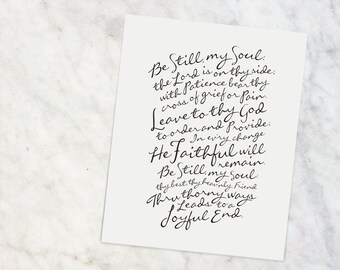 Be Still, my Soul:
the Lord is on thy side:
with Patience bear thy
cross of grief or Pain
Leave to thy God
to order and Provide:
In ev'ry change
He Faithful will
remain.
Be Still, my Soul
thy best, thy heav'nly Friend
Thru thorny ways
Leads to a
Joyful End.